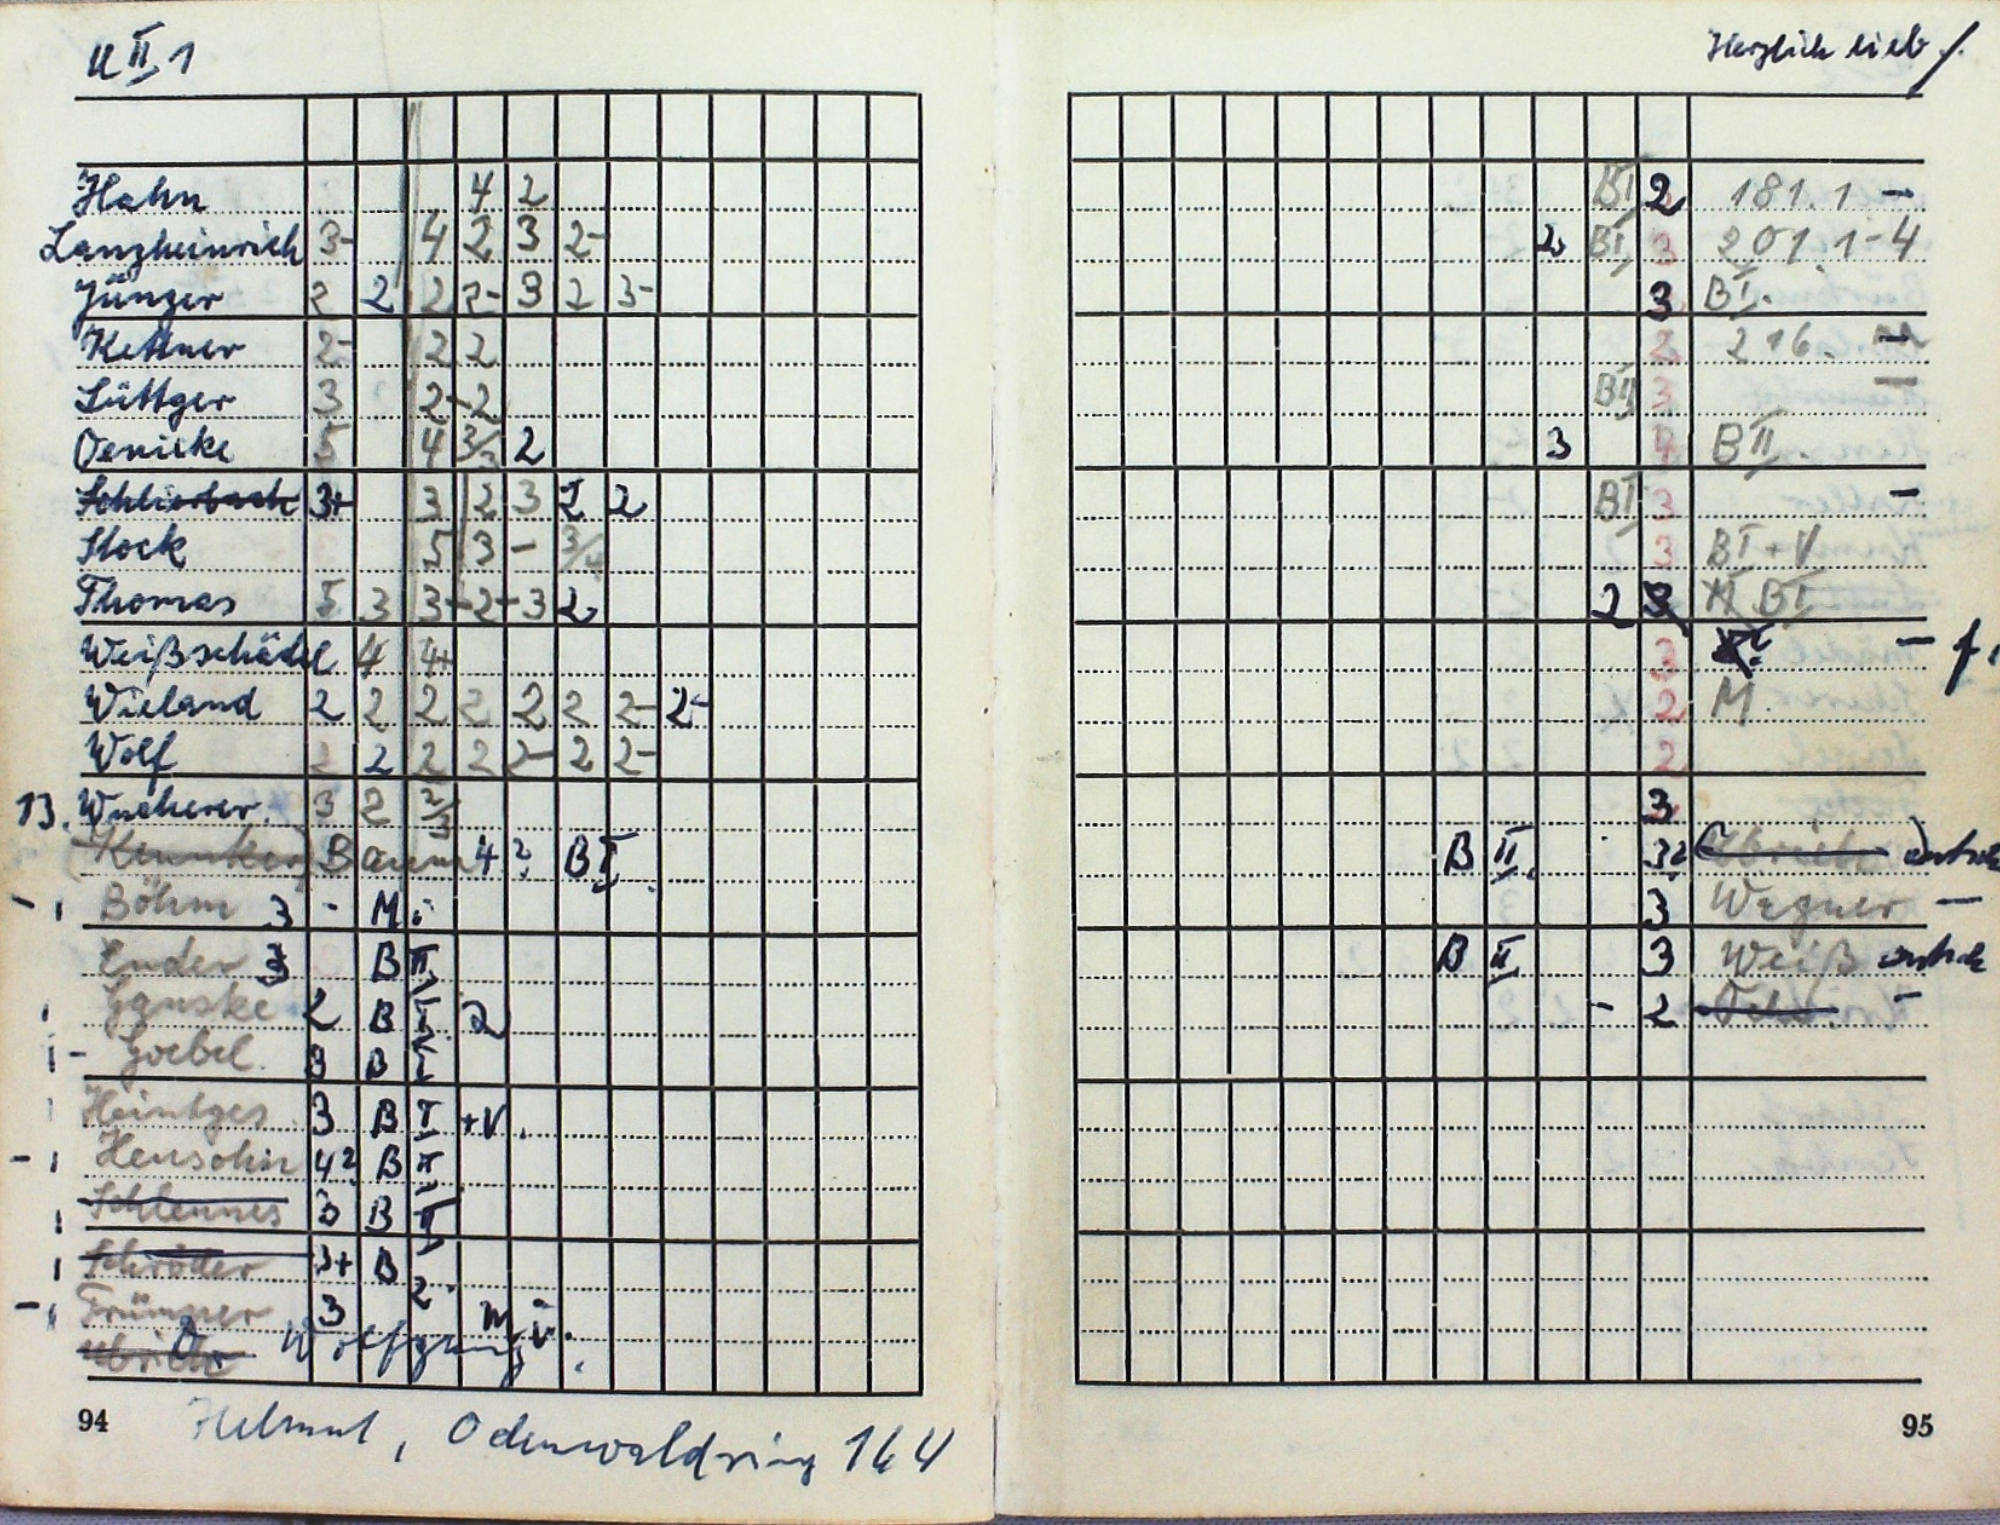 U II 1
Hahn 4 2
Lanzheinrich 3- 4 2 3 2-
Jünger 2 2 2 2- 3 2 3-
Kettner 2- 2 2
Lüttger 3 2-2
Oenicke 5 4 3/2 2
Schlierbach 3+ 3 2 3 2 2
Stock 5 3 - 3/4
Thomas 5 3 3+2+3 2
Weißschädel 4 4+
Wieland 2 2 2 2 2 2 2- 2-
Wolf 2 2 2 2 2- 2 2-
13. Wucherer. 3 2 2/3
4 ? B I
Böhm 3 - M
Ender 3 B II
Ganske 2 B I 2
- Goebel. 3 B I
Heintges 3 B I +V.
- Heusohn 4? B II
Schlennes 3 B II
Schröder 3+ B I
- Trümper 3 2
Wolfgang
94
Helmut, Odenwaldring 164
Herzlich lieb
B I 2 181. 1 -
2 B I 3 201. 1-4
3 B I.
2 216.
B II 3 -
3 4 B II.
B I 3 -
3 B I + V
2 3 B I
3 -
2 M.
2
3
B II. 3?
3 Wegner -
B II 3 Weiß
- 2 -
95